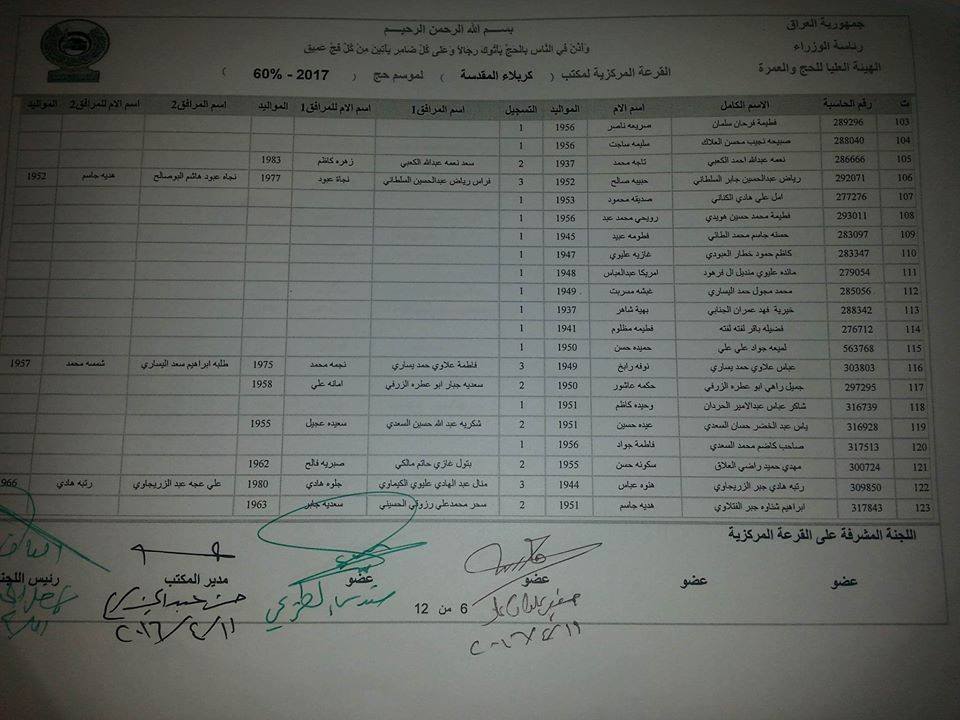 جمهورية العراق
رئاسة الوزراء
الهيئة العليا للحج والعمرة
بسم الله الرحمن الرحيم
وأذن في الناس بالحج يأتوك رجالا وعلى كل ضامر يأتين من كل فج عميق
القرعة المركزية لمكتب ( كربلاء المقدسة ) لموسم حج ( 2017 - 60% )
ت رقم الحاسبة الاسم الكامل اسم الام المواليد التسجيل اسم المرافق1 اسم الام للمرافق1 المواليد اسم المرافق2 اسم الام للمرافق2 المواليد
103 289296 فطيمة فرحان سلمان صريعه ناصر 1956 1
104 288040 صبيحه نجيب محسن العلاك سليمه ساجت 1956 1
105 286666 نعمه عبدالله احمد الكعبي تاجه محمد 1937 2 سعد نعمه عبدالله الكعبي زهره كاظم 1983
106 292071 رياض عبدالحسين جابر السلطاني حبيبه صالح 1952 3 فراس رياض عبدالحسين السلطاني نجاة عبود 1977 نجاه عبود هاشم البوصالح هديه جاسم 1952
107 277276 امل علي هادي الكناني صديقه محمود 1953 1
108 293011 فطيمة محمد حسين هويدي رويحي محمد عبد 1956 1
109 283097 حسنه جاسم محمد الطائي فطومه عبيد 1945 1
110 283347 كاظم حمود خطار العبودي غازيه عليوي 1947 1
111 279054 مائده عليوي منديل ال فرهود امريكا عبدالعباس 1948 1
112 285056 محمد مجول حمد اليساري غبشه مسربت 1949 1
113 288342 خيرية فهد عمران الجنابي بهية شاهر 1937 1
114 276712 فضيله باقر لفته لفته فطيمه مظلوم 1941 1
115 563768 لميعه جواد علي علي حميده حسن 1950 1
116 303803 عباس علاوي حمد يساري نوفه رابح 1949 3 فاطمة علاوي حمد يساري نجمه محمد 1975 طلبه ابراهيم سعد اليساري شمسه محمد 1957
117 297295 جميل راهي ابو عطره الزرفي حكمه عاشور 1950 2 سعديه جبار ابو عطره الزرفي امانه علي 1958
118 316739 شاكر عباس عبدالامير الحردان وحيده كاظم 1951 1
119 316928 ياس عبد الخضر حسان السعدي عيده حسين 1951 2 شكريه عبد الله حسين السعدي سعيده عجيل 1955
120 317513 صاحب كاضم محمد السعدي فاطمة جواد 1956 1
121 300724 مهدي حميد راضي العلاق سكونه حسن 1955 2 بتول غازي حاتم مالكي صبريه فالح 1962
122 309850 رتبه هادي جبر الزريجاوي هنوه عباس 1944 3 منال عبد الهادي عليوي الكيماوي جلوه هادي 1980 علي عجه عبد الزريجاوي رتبه هادي 966
123 317843 ابراهيم شناوه جبر الفتلاوي هديه جاسم 1951 2 سحر محمدعلي رزوقي الحسيني سعديه جابر 1963
اللجنة المشرفة على القرعة المركزية
عضو عضو عضو عضو مدير المكتب رئيس اللجنة
6 من 12
٢٠١٦/٤/١١
٢٠١٦/٤/١١